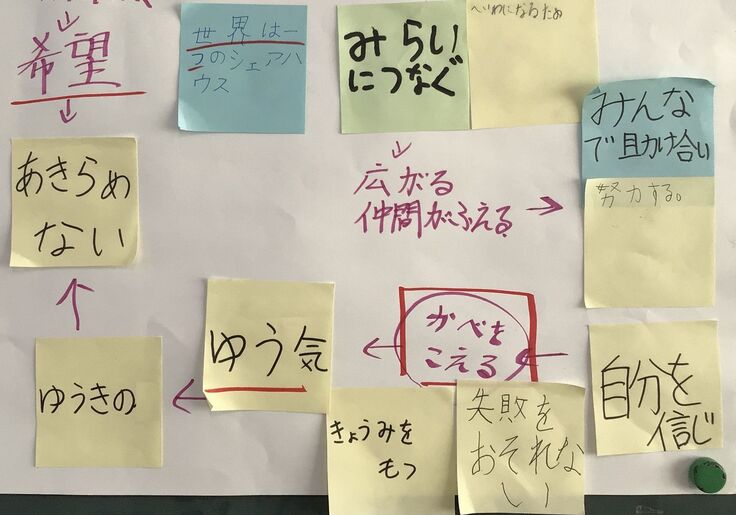 希望
世界は一
つのシェアハ
ウス
みらい
につなぐ
へいわになるため
みんな
で助け合い
努力する。
広がる
仲間がふえる
あきらめ
ない
ゆうきの
ゆう気
かべを
こえる
きょうみを
もつ
失敗を
おそれな
い
自分を
信じ